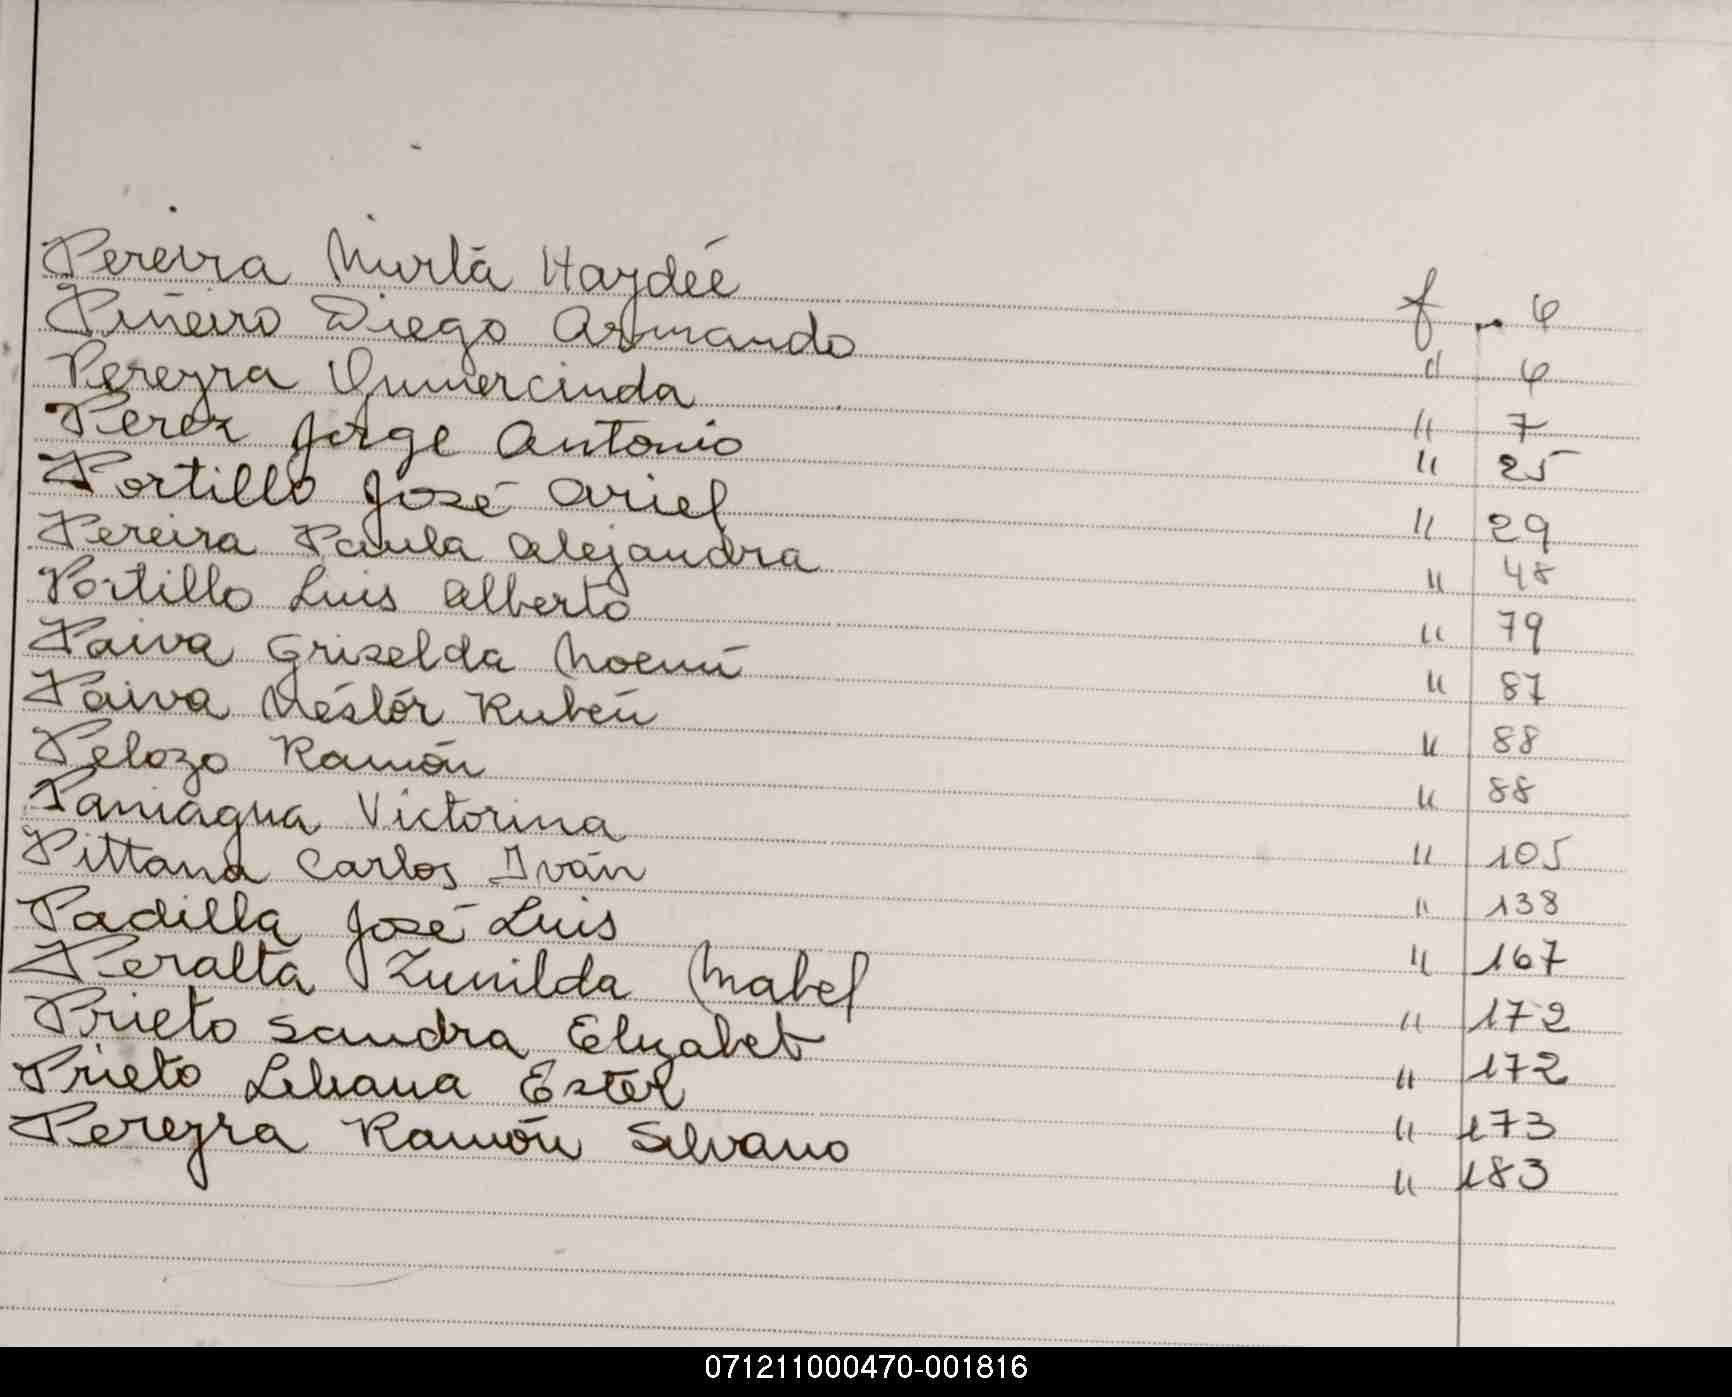 Pereira Mirta Haydeé f .. 6
Piñeiro Diego Armando " 6
Pereyra Gumercinda " 7
Perez Jorge Antonio " 25
Portillo José Ariel " 29
Pereira Paula Alejandra " 48
Portillo Luis Alberto " 79
Paiva Griselda Noemí " 87
Paiva Néstór Rubén " 88
Pelozo Ramón " 88
Paniagua Victorina " 105
Pittana Carlos Iván " 138
Padilla José Luis " 167
Peralta Zunilda Mabel " 172
Prieto Sandra Elizabet " 172
Prieto Liliana Ester " 173
Pereyra Ramón Silvano " 183
071211000470-001816